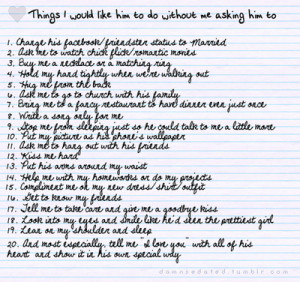 Things I would like him to do without me asking him to
1. Change his facebook/friendster status to Married
2. Ask me to watch chick flick/romantic movies
3. Buy me a necklace or a matching ring
4. Hold my hand tightly when we're walking out
5. Hug me from the back
6. Ask me to go to church with his family
7. Bring me to a fancy restaurant to have dinner even just once
8. Write a song only for me
9. Stop me from sleeping just so he could talk to me a little more
10. Put my picture as his phone's wallpaper
11. Ask me to hang out with his friends
12. Kiss me hard
13. Put his arms around my waist
14. Help me with my homeworks or do my projects
15. Compliment me on my new dress/shirt/outfit
16. Get to know my friends
17. Tell me to take care and give me a goodbye kiss
18. Look into my eyes and smile like he'd seen the prettiest girl
19. Lean on my shoulder and sleep
20. And most especially, tell me "I love you" with all of his
heart and show it in his own special way
damncedated.tumblr.com